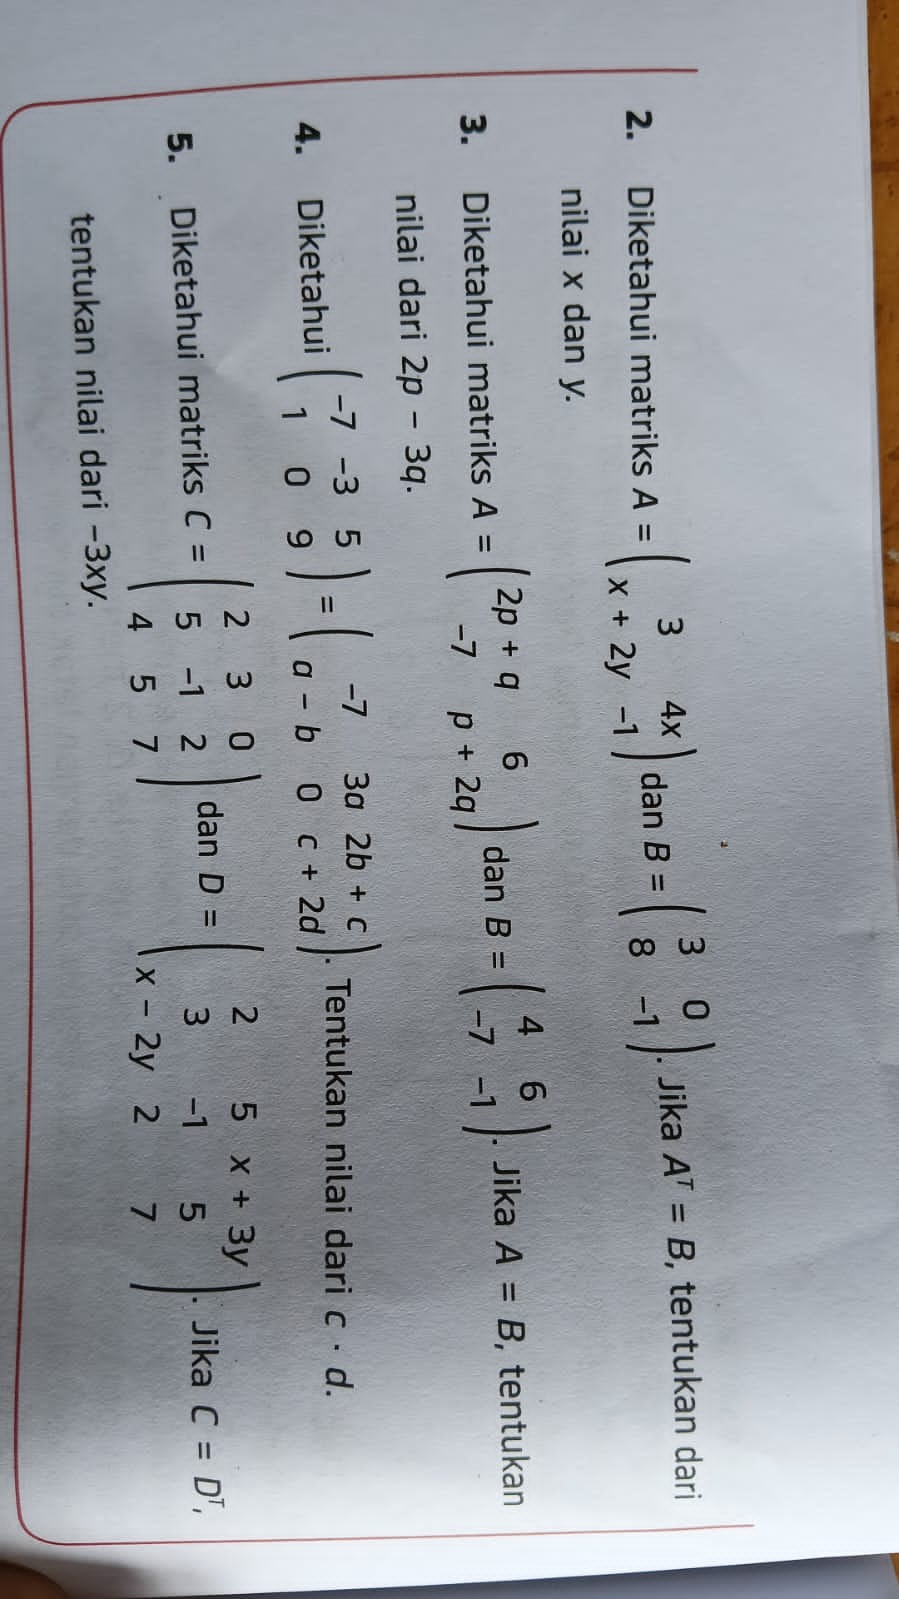 2. Diketahui matriks A = ( 3 4x ; x + 2y -1 ) dan B = ( 3 0 ; 8 -1 ). Jika Aᵀ = B, tentukan dari
nilai x dan y.
3. Diketahui matriks A = ( 2p + q 6 ; -7 p + 2q ) dan B = ( 4 6 ; -7 -1 ). Jika A = B, tentukan
nilai dari 2p – 3q.
4. Diketahui ( -7 -3 5 ; 1 0 9 ) = ( -7 3a 2b + c ; a – b 0 c + 2d ). Tentukan nilai dari c · d.
5. Diketahui matriks C = ( 2 3 0 ; 5 -1 2 ; 4 5 7 ) dan D = ( 2 5 x + 3y ; 3 -1 5 ; x – 2y 2 7 ). Jika C = Dᵀ,
tentukan nilai dari –3xy.